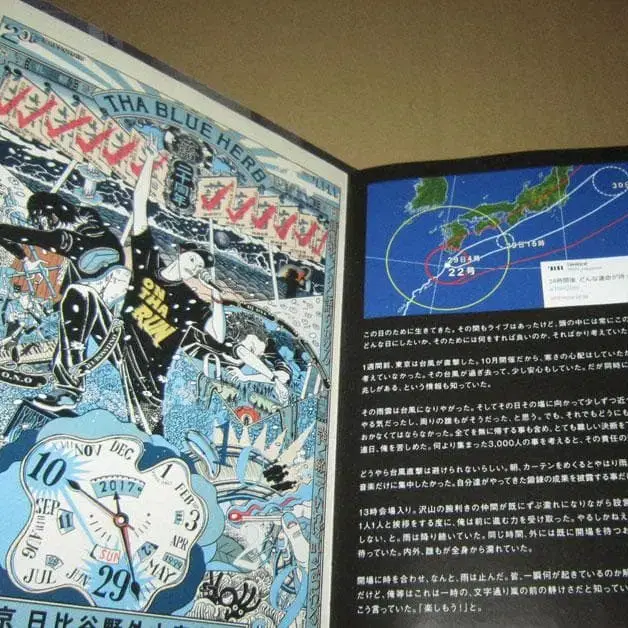 THA BLUE HERB
宇宙
ON THA RUN
O.N.O
10
NOV
DEC
1
FEB
3
APR
MAY
29
JUL
SEP
11
2017
SUN
日比谷野外
39
29日15時
29日4時
22号
24時間後、どんな運命が待
この日のために生きてきた。その間もライブはあったけど、頭の中には常にこの
どんな日にしたいか、そのためには何をすれば良いのか、そればかり考えていた
1週間前、東京は台風が直撃した。10月開催だから、寒さの心配はしていたが
考えていなかった。その台風が過ぎ去って、少し安心もしていた。だが同時に
兆しがある、という情報も知っていた。
その雨雲は台風になりやがった。そしてその日その場に向かって少しずつ近づ
やる気だったし、周りの誰もがそうだった、と思う。でも、それでもどうにも
おかなくてはならなかった。全てを無に帰する事も含め、とても難しい決断を
連日、俺を苦しめた。何より集まった3,000人の事を考えると、その責任の
どうやら台風直撃は避けられないらしい。朝、カーテンをめくるとやはり雨
音楽だけに集中したかった。自分達がやってきた鍛錬の成果を披露する事だ
13時会場入り。沢山の腕利きの仲間が既にずぶ濡れになりながら設営
1人1人と挨拶をする度に、俺は前に進む力を受け取った。やるしかねえ
しない、と。雨は降り続いていた。同じ時間、外には既に開場を待つお
待っていた。内外、誰もが全身から濡れていた。
開場に時を合わせ、なんと、雨は止んだ。皆、一瞬何が起きているのか解
だけど、俺等はこれは一時の、文字通り嵐の前の静けさだと知ってい
こう言っていた。「楽しもう！」と。